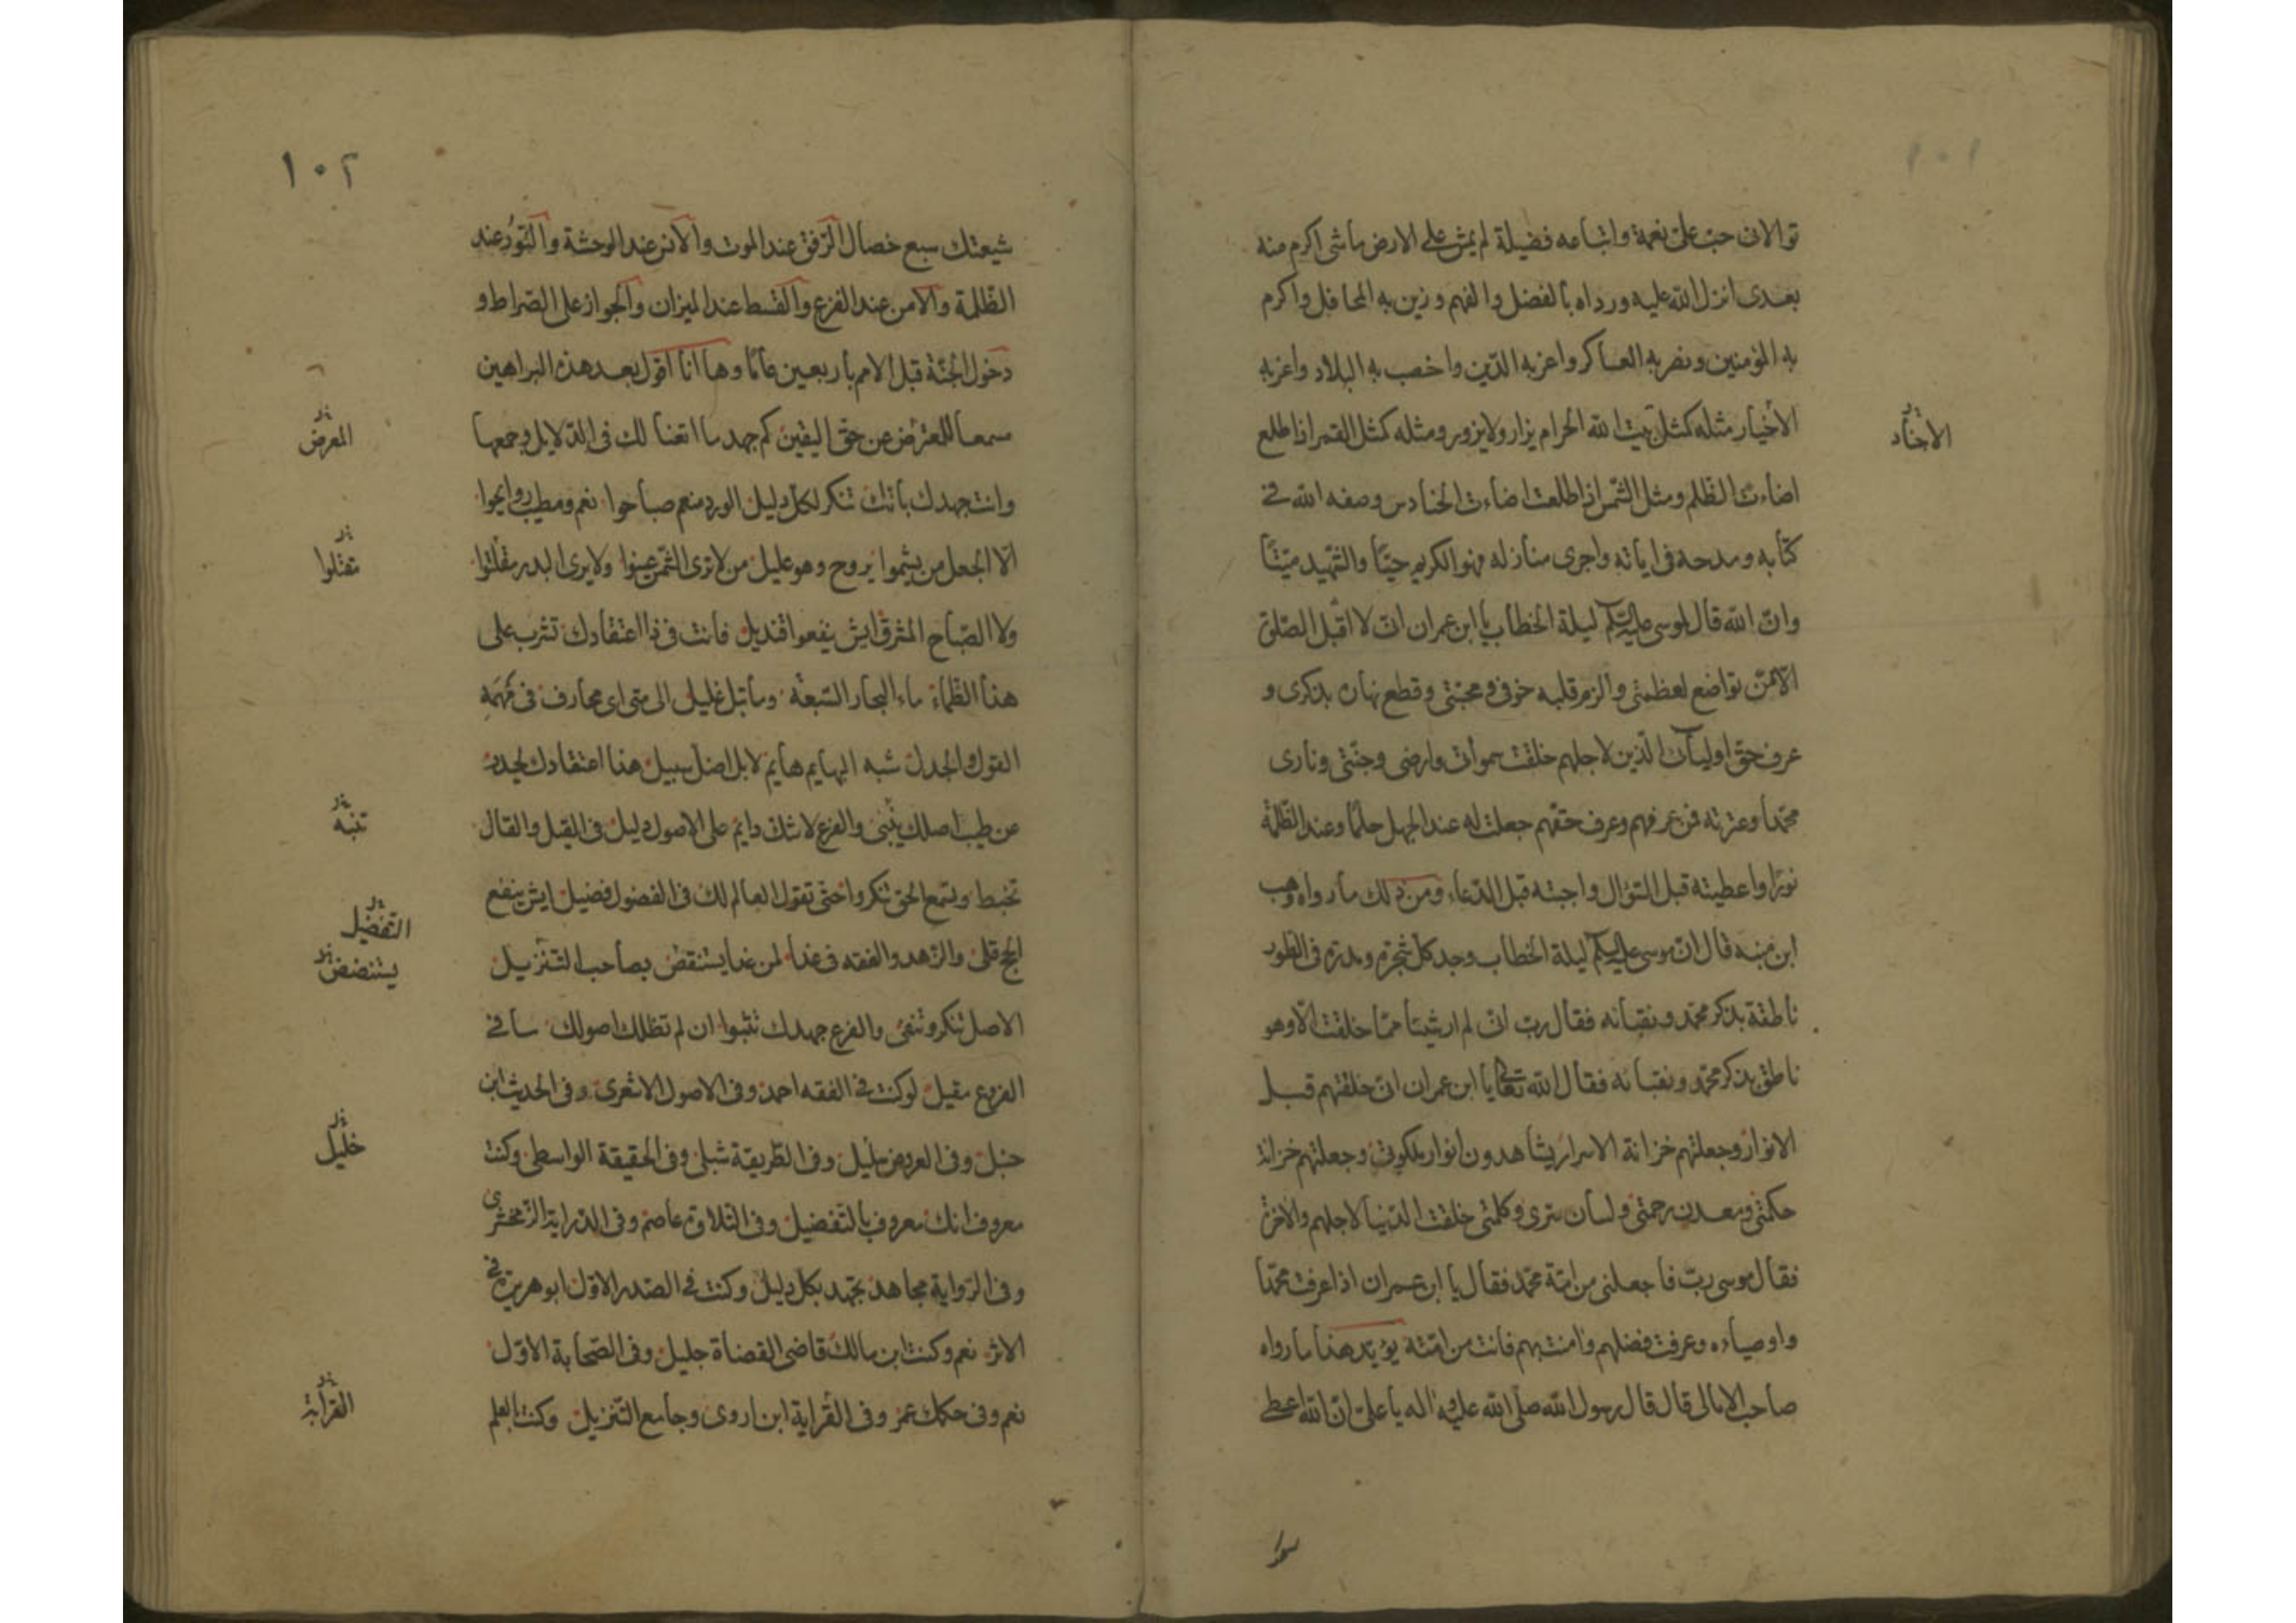 ١٠١
توالان حبّ علىّ نعمة واتباعه فضيلة لم يمش على الارض ماشى اكرم منه
بعدى انزل الله عليه ورداه بالفضل والفهم وزين به المحافل واكرم
به المؤمنين ونصر به العساكر واعز به الدّين واخصب به البلاد واعز به
الأخيار مثله كمثل بيت الله الحرام يزار ولا يزور ومثله كمثل القمر اذا طلع
الاخياد
اضاءت الظلم ومثل الشّمس اذا طلعت اضاءت الحنادس وصفه الله فى
كتابه ومدحه فى اياته واجرى منازله فهو الكريم حيّا والشّهيد ميّتًا
وانّ الله قال لموسى عليه السّلم ليلة الخطاب يا ابن عمران انّى لا اقبل الصّلوة
الّا ممّن تواضع لعظمتى والزم قلبه خوفى ومحبّتى وقطع نهاره بذكرى و
عرف حقّ اوليائى الّذين لاجلهم خلقت سمواتى وارضى وجنّتى ونارى
محمّدًا وعترته فمن عرفهم وعرف حقّهم جعلت له عند الجهل حلمًا وعند الظّلمة
نورًا واعطيته قبل السّؤال واجبته قبل الدّعاء ومن ذلك ما رواه وهب
ابن منبه قال انّ موسى عليه السلم ليلة الخطاب وجد كل شجرة ومدرة فى الطّور
ناطقة بذكر محمّد ونقبائه فقال ربّ انّى لم ار شيئا ممّا خلقت الّا وهو
ناطق بذكر محمّد ونقبائه فقال الله تعالى يا ابن عمران انّى خلقتهم قبل
الانوار وجعلتهم خزانة الاسرار يشاهدون انوار ملكوتى وجعلتهم خزانة
حكمتى ومعدن رحمتى ولسان سرّى وكلمتى خلقت الدّنيا لاجلهم والآخرة
فقال موسى ربّ فاجعلنى من امّة محمّد فقال يا ابن عمران اذا عرفت محمّدا
واوصياءه وعرفت فضلهم وامنت بهم فانت من امّته يؤيّد هذا ما رواه
صاحب الامالى قال قال رسول الله صلّى الله عليه وآله يا علىّ انّ الله اعطى
١٠٢
شيعتك سبع خصال الرّفق عند الموت والانس عند الوحشة والنّور عند
الظّلمة والامن عند الفزع والقسط عند الميزان والجواز على الصّراط و
دخول الجنّة قبل الامم باربعين عامًا وها انا اقول بعد هذه البراهين
سمعا للمعترض عن حقّ اليقين كم جهد ما اتعنا لك فى الدّلايل وجمعها
المعرض
وانت جهدك بانّك تنكر لكل دليل الورد منعم صباحوا نعم ومطيب روايحوا
الّا الجعل من يشموا يروح وهو عليل من لا ترى الشّمس عينوا ولا يرى البدر مقلتوا
تقتلوا
ولا الصّباح المشرق ايش ينفعوا قنديل فانت فى ذا اعتقادك تشرب على
هذا الظّماء ماء البحار السّبعة وما تبل غليل الى متى اى محارف فى مهمه
القول والجدل شبه البهايم هايم لا بل اضلّ سبيل هذا اعتقادك لحيد
عن طيب اصلك ينبى والفرع لا شك دايم على الاصول دليل فى القيل والقال
تنبه
تخبط وتسمع الحق تنكروا حتّى تقول العالم لك فى الفضول فضيل ايش ينفع
التفضيل
الحج قلى والزّهد والفقه فى غدا لمن غدا يستنقض بصاحب التنزيل
يستنضض
الاصل تنكر وتنفى والفرع جهدك تثبتوا ان لم تظلك اصولك سا فى
الفروع مقيل لو كنت فى الفقه احمد وفى الاصول الاشعرى وفى الحديث ابن
حنبل وفى العروض خليل وفى الطّريقة شبلى وفى الحقيقة الواسطى وكنت
خليل
معروف انك معروف بالتفضيل وفى التلاوة عاصم وفى الدّراية الزّمخشرى
وفى الرّواية مجاهد تجتهد بكل دليل وكنت فى الصّدر الاوّل ابو هريرة فى
الاثر نعم وكنت ابن مالك قاضى القضاة جليل وفى الصّحابة الاوّل
نعم وفى حكمك عمر وفى القراية ابن اروى وجامع التّنزيل وكنت بالعلم
القرابة